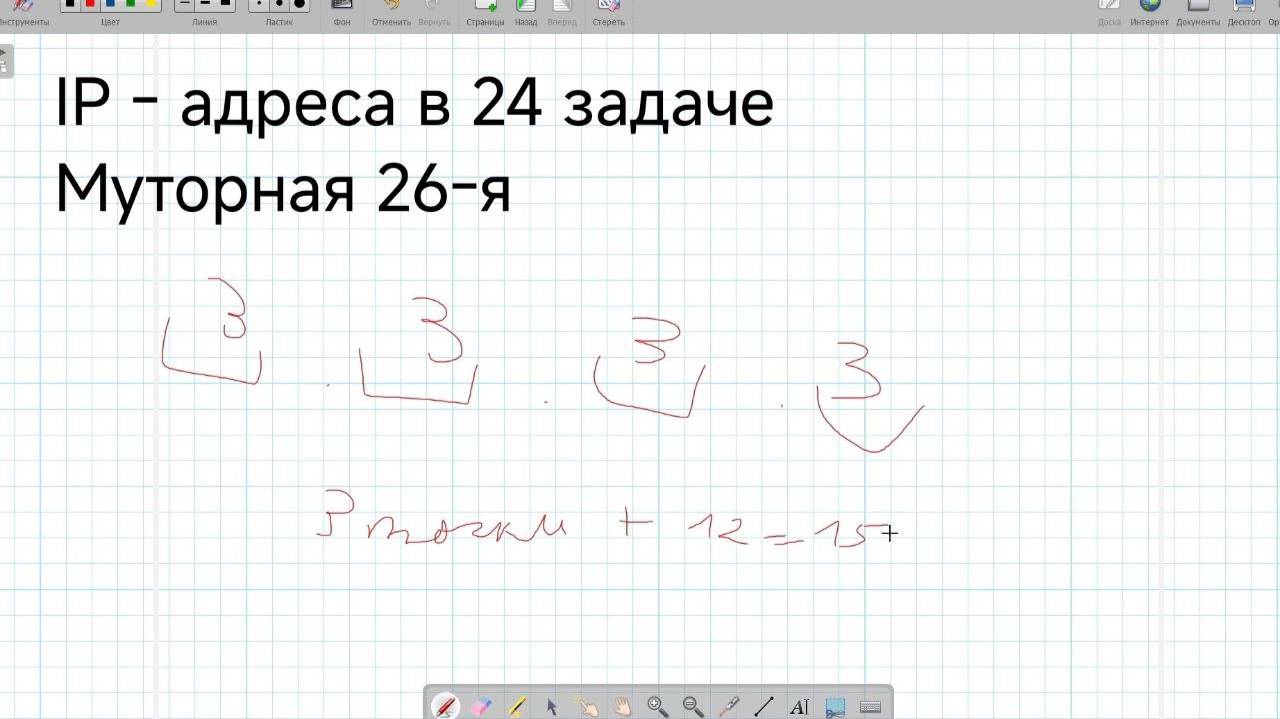 Инструменты Цвет Линия Ластик Фон Отменить Вернуть Страницы Назад Вперед Стереть Доска Интернет Документы Десктоп
IP - адреса в 24 задаче
Муторная 26-я
3 . 3 . 3 . 3
3 точки + 12 = 15
AI